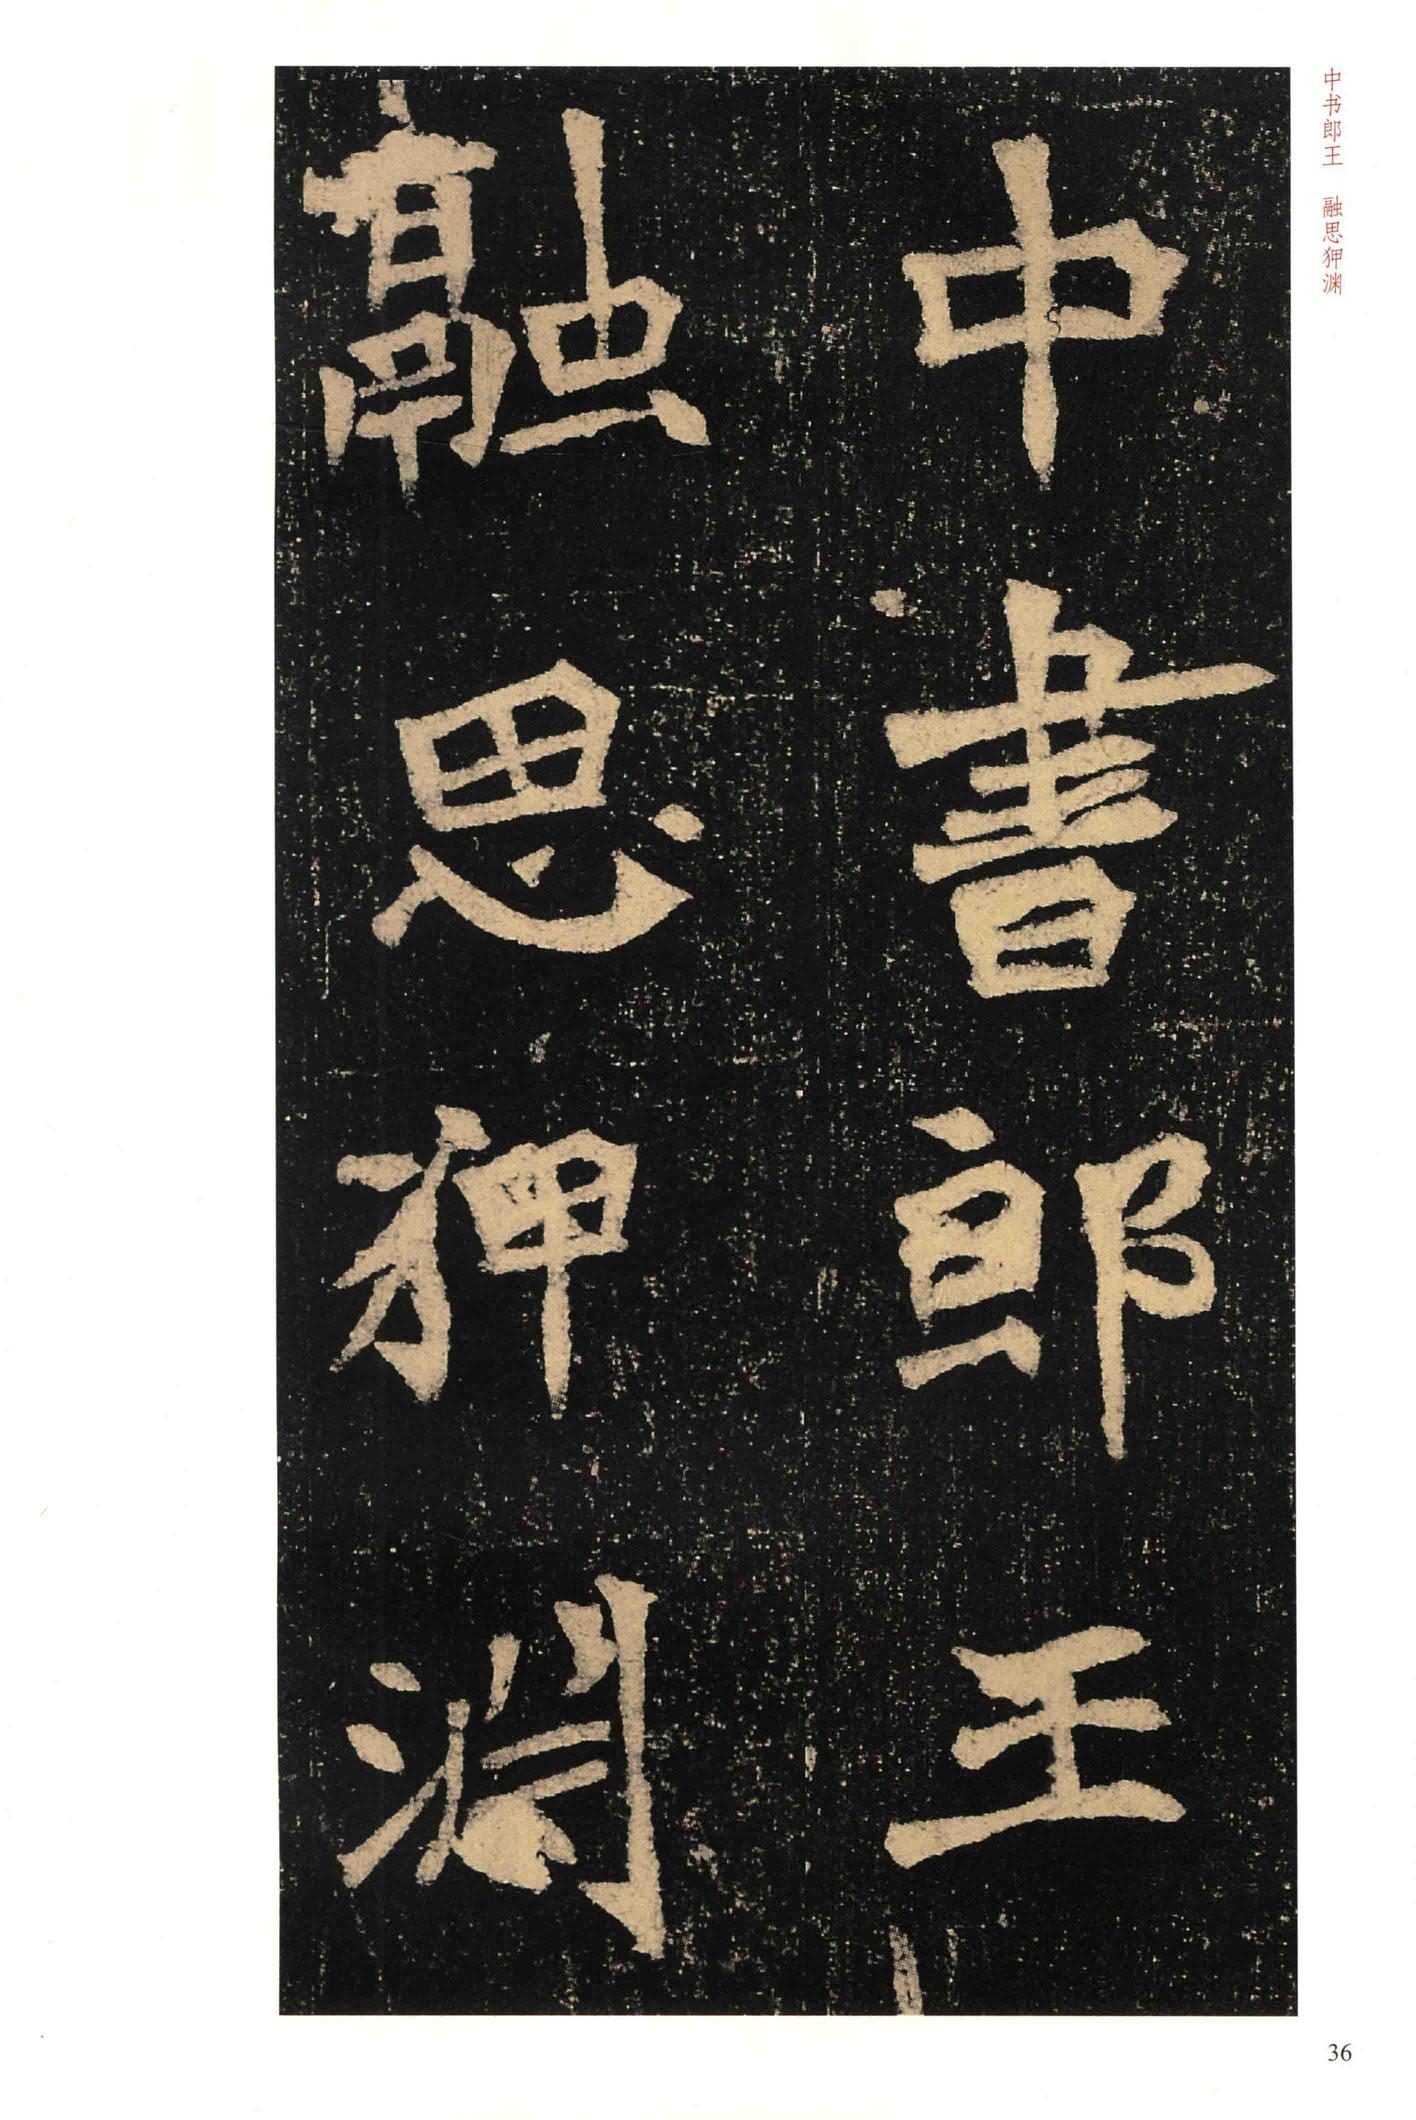 中書郎王
融思狎淵
中书郎王　融思狎渊
36